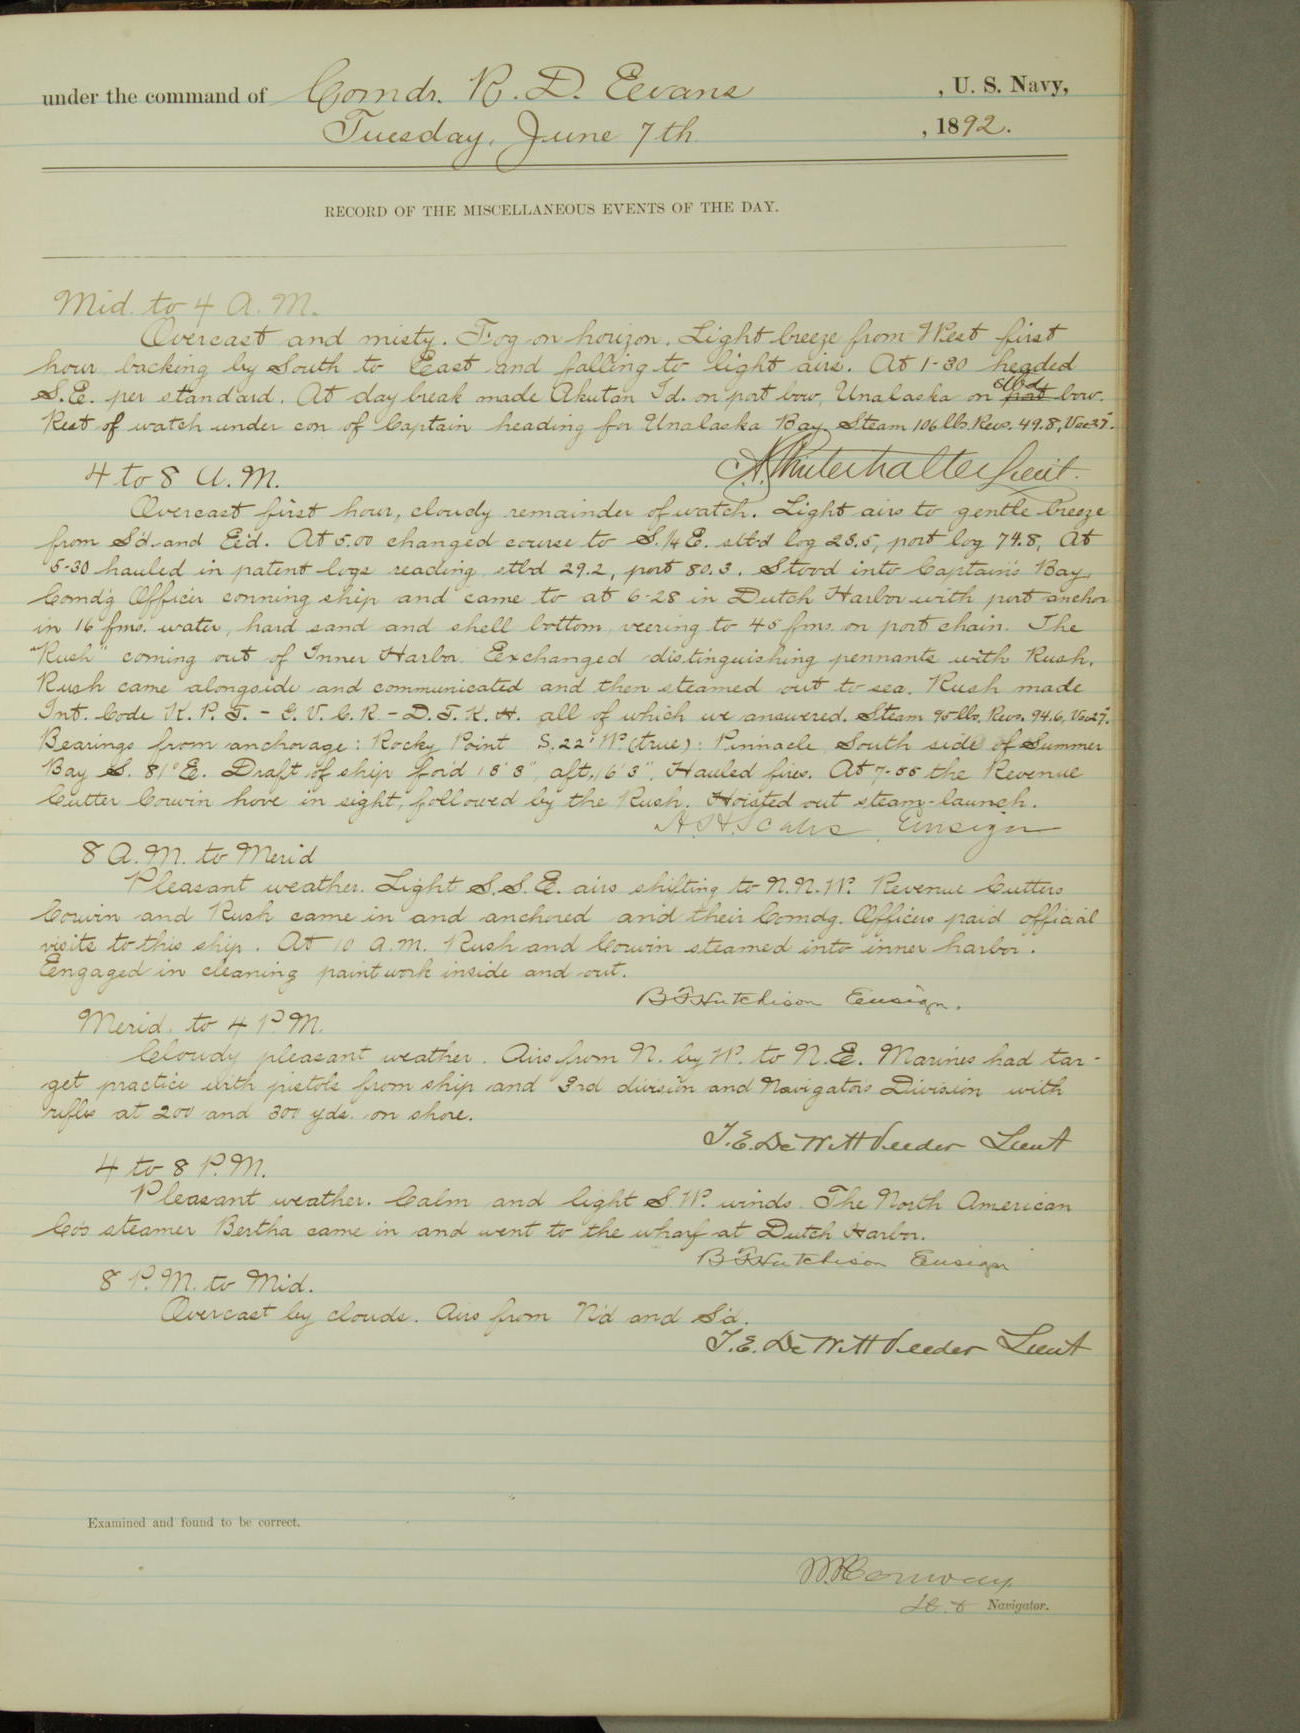 under the command of Comdr. R. D. Evans, U. S. Navy,
Tuesday, June 7th, 1892.
RECORD OF THE MISCELLANEOUS EVENTS OF THE DAY.
Mid. to 4 A. M.
Overcast and misty. Fog on horizon. Light breeze from West first
hour backing by South to East and falling to light airs. At 1-30 headed
S.E. per standard. At day break made Akutan Id. on port bow, Unalaska on port stbd bow.
Rest of watch under con of Captain heading for Unalaska Bay. Steam 106 lbs. Revs. 49.8, Vac 27".
A. Winterhalter Lieut.
4 to 8 A. M.
Overcast first hour, cloudy remainder of watch. Light airs to gentle breeze
from S'd and E'd. At 5.00 changed course to S. 1/4 E. stb'd log 23.5, port log 74.8, At
5-30 hauled in patent logs reading stbd 29.2, port 80.3. Stood into Captain's Bay
Comd'g Officer conning ship and came to at 6-28 in Dutch Harbor with port anchor
in 16 fms. water, hard sand and shell bottom, veering to 45 fms. on port chain. The
"Rush" coming out of Inner Harbor. Exchanged distinguishing pennants with Rush.
Rush came alongside and communicated and then steamed out to sea. Rush made
Int. Code K. P. T. - G. V. C. R - D. T. K. H. all of which we answered. Steam 95 lbs, Revs. 94.6, Vac 27".
Bearings from anchorage: Rocky Point S. 22° W. (true): Pinnacle South side of Summer
Bay S. 81° E. Draft of ship for'd 15' 8", aft. 16' 3". Hauled fires. At 7-55 the Revenue
Cutter Corwin hove in sight, followed by the Rush. Hoisted out steam-launch.
Ensign
8 A. M. to Merid
Pleasant weather. Light S. S. E. airs shifting to N. N. W. Revenue Cutters
Corwin and Rush came in and anchored and their Comdg. Officers paid official
visits to this ship. At 10 a. m. Rush and Corwin steamed into inner harbor.
Engaged in cleaning paintwork inside and out.
B F Hutchison Ensign.
Merid. to 4 P. M.
Cloudy pleasant weather. Airs from N. by W. to N. E. Marines had tar-
get practice with pistols from ship and 3rd division and Navigators Division with
rifles at 200 and 300 yds. on shore.
T. E. DeWitt Veeder Lieut
4 to 8 P. M.
Pleasant weather. Calm and light S W. winds. The North American
Co's steamer Bertha came in and went to the wharf at Dutch Harbor.
B F Hutchison Ensign
8 P. M. to Mid.
Overcast by clouds. Airs from N'd and S'd.
T. E. DeWitt Veeder Lieut
Examined and found to be correct.
Conway
Navigator.